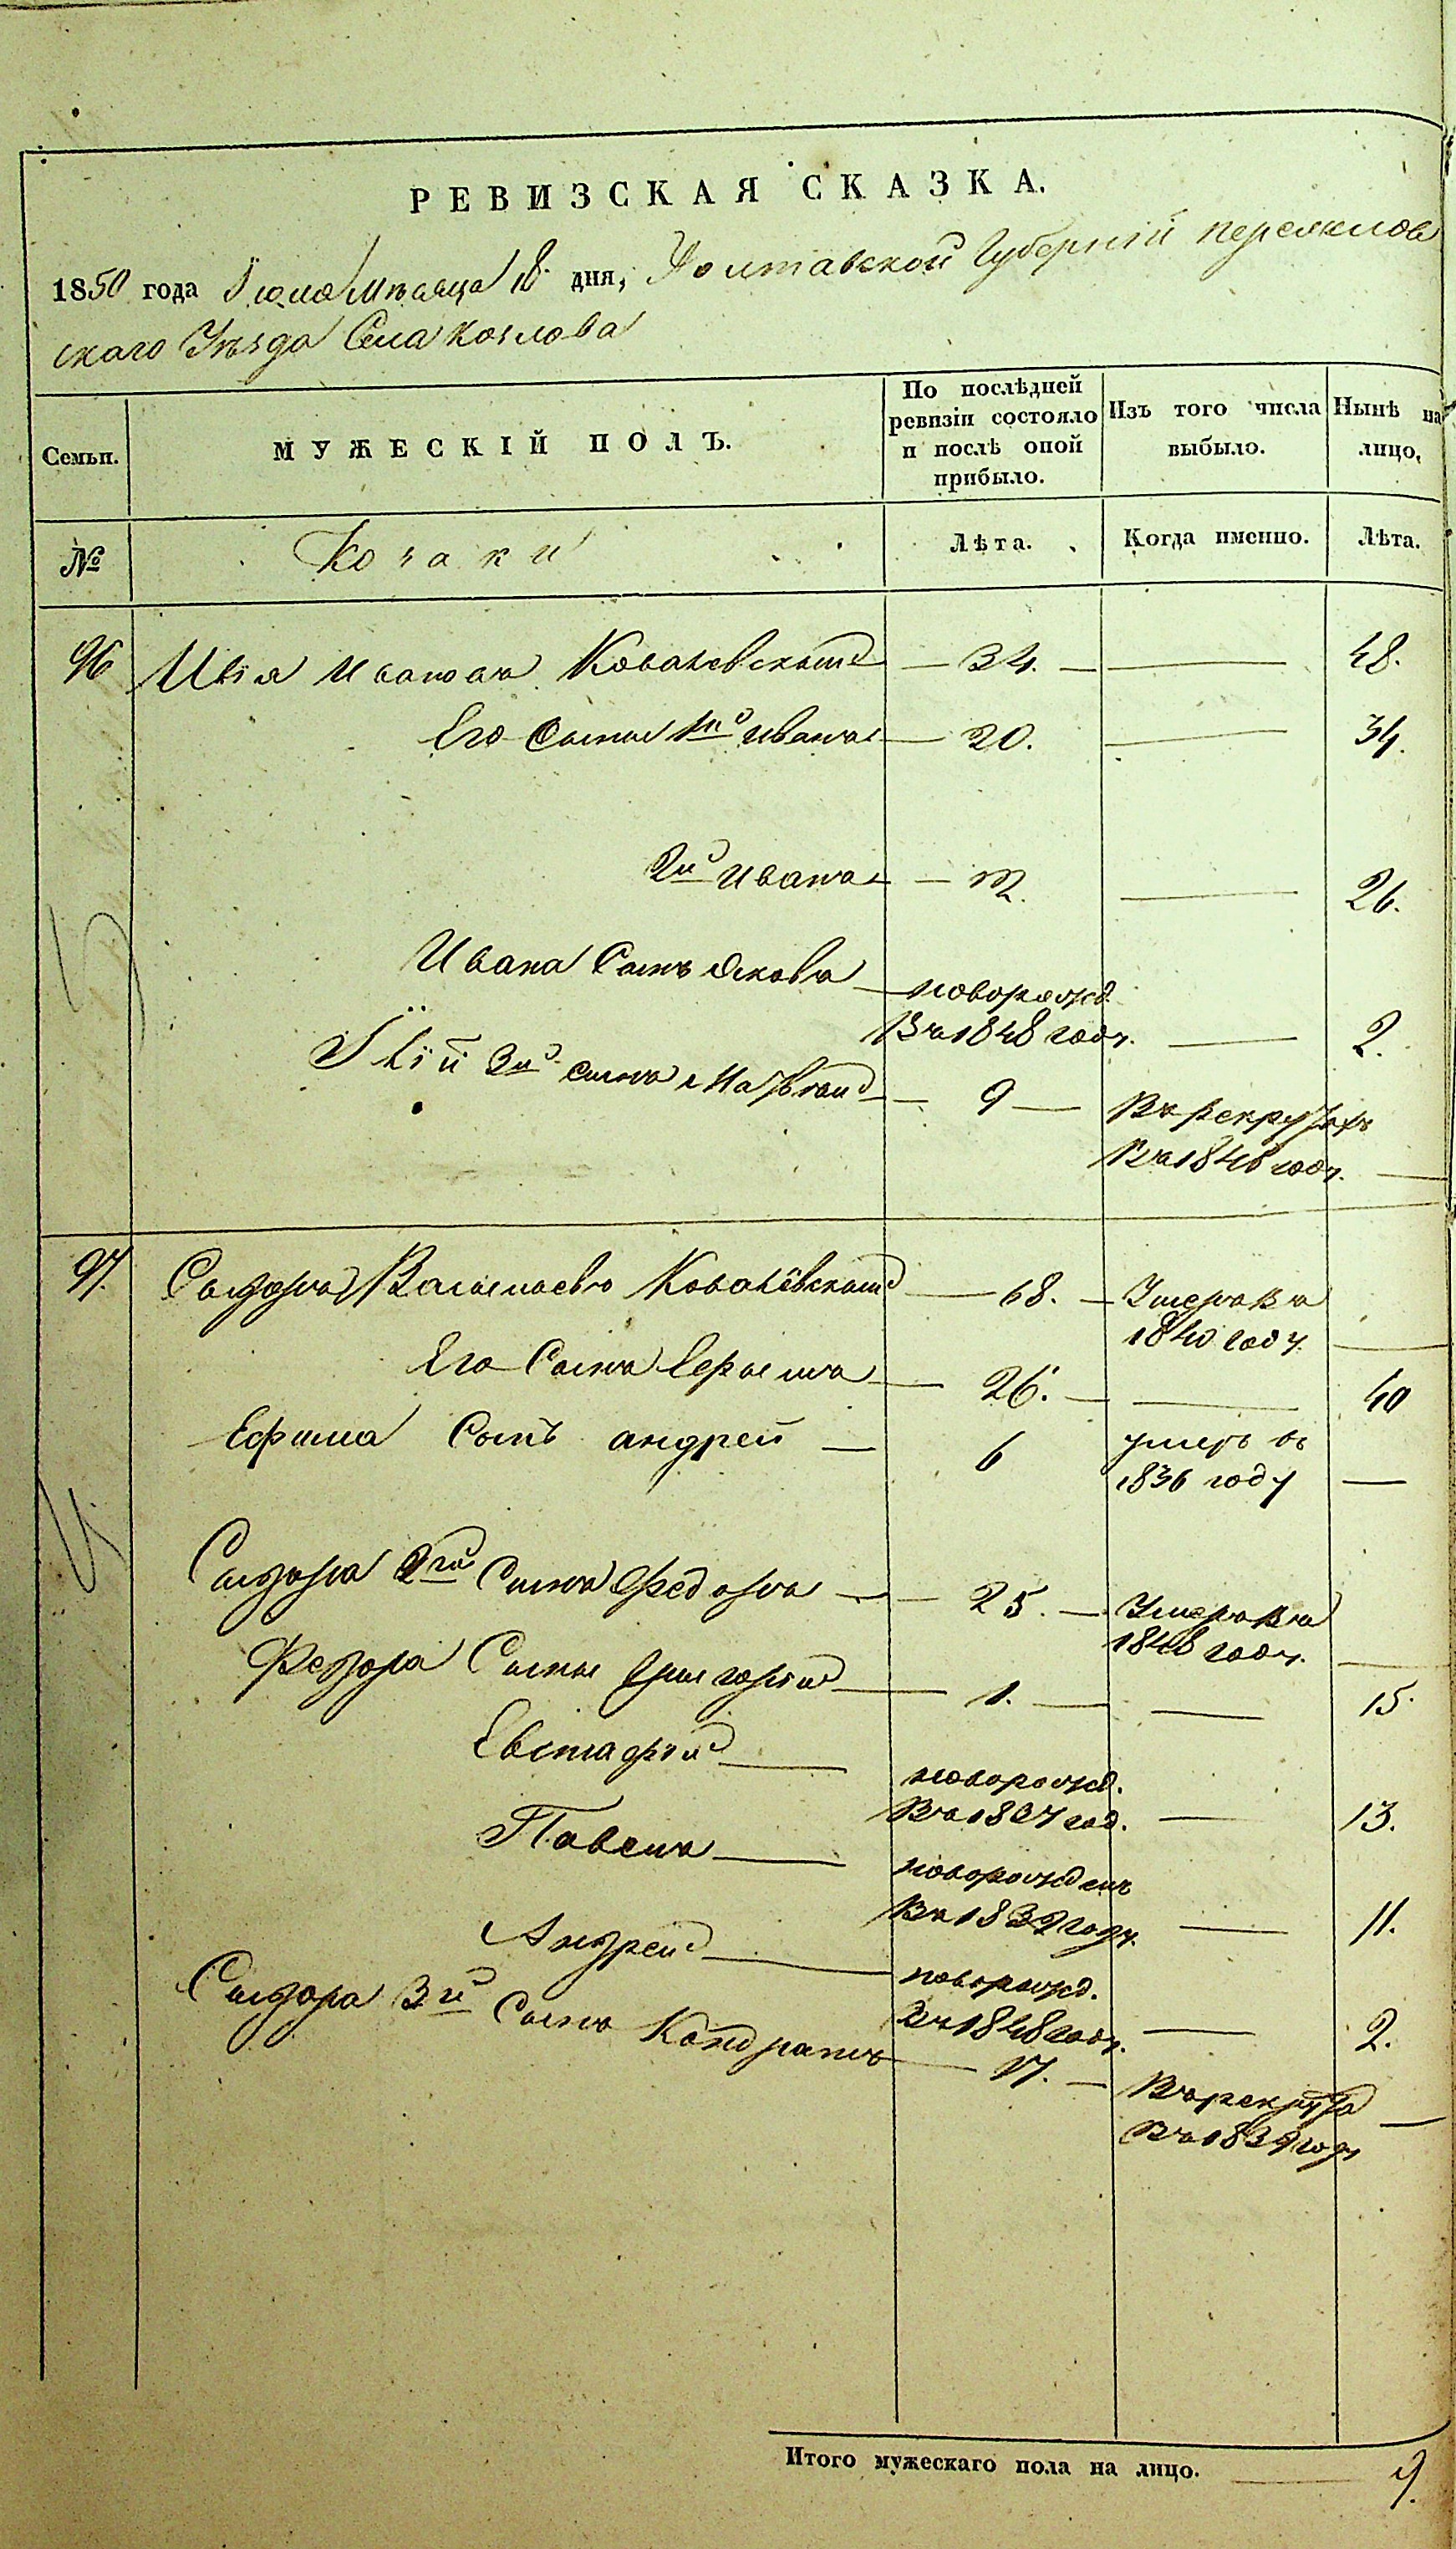 РЕВИЗСКАЯ СКАЗКА.
1850 года Июля Мѣсяца 18 дня, Полтавской Губерніи Переяслов
скаго Уѣзда Села Козлова
Семьи.
МУЖЕСКІЙ ПОЛЪ.
По послѣдней ревизіи состояло и послѣ оной прибыло.
Изъ того числа выбыло.
Нынѣ на лицо,
№
Козаки
Лѣта.
Когда именно.
Лѣта.
96 Ивановъ Ковалевскій — 34. — 48.
Его Сыны 1й Иванъ — 20. 34.
2й Иванъ — 12. 26.
Ивана Сынъ Яковъ — новорожд.
въ 1848 году. — 2.
3й Сынъ Матвей — 9 — въ рекрутахъ
въ 1848 году. —
97. Сидоръ Васильевъ Ковалевскій — 68. — Умеръ въ
1840 году. —
Его Сынъ Ефимъ — 26. — 40
Ефима Сынъ андрей — 6 умеръ въ
1836 году —
Сидора 2й Сынъ Федоръ — 25. — Умеръ въ
1848 году. —
Федора Сыны Григорій — 1. — 15.
Евстафій — новорожд.
въ 1837 год. — 13.
Павелъ — новорожденъ
въ 1839 году. — 11.
Андрей — новорожд.
въ 1848 году. — 2.
Сидора 3й Сынъ Кондратъ — 17. — въ рекруты
въ 1834 году —
Итого мужескаго пола на лицо. — 9.